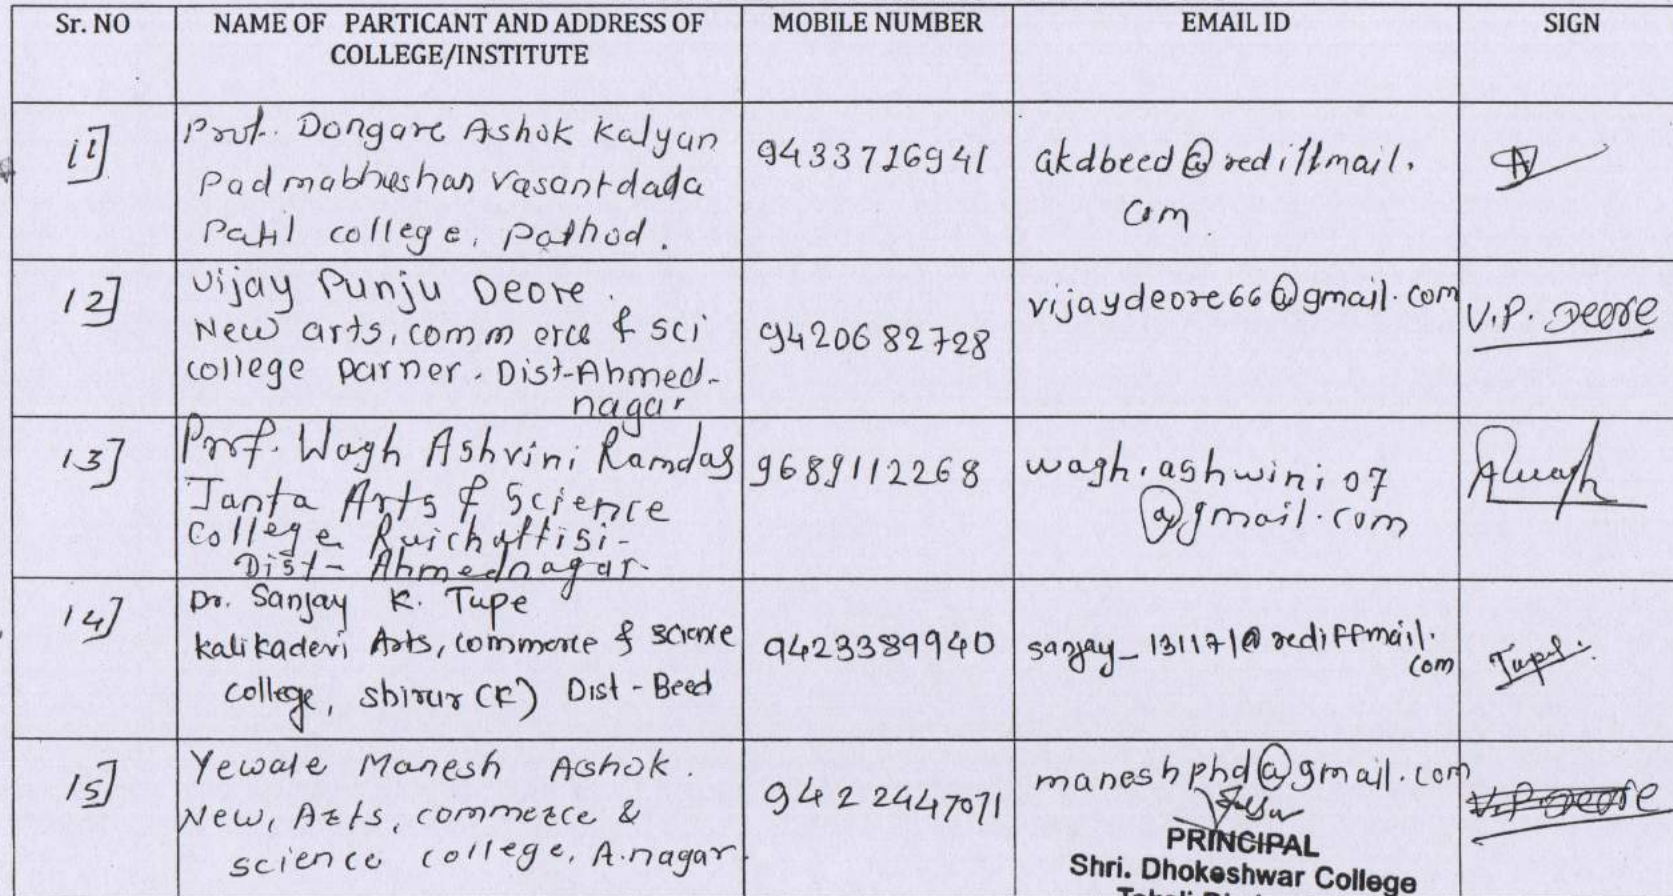 Sr. NO NAME OF PARTICANT AND ADDRESS OF COLLEGE/INSTITUTE MOBILE NUMBER EMAIL ID SIGN
11]
Prof. Dongare Ashok Kalyan
Padmabhushan Vasantdada
Patil college, Pathod.
9433716941
akdbeed@rediffmail.
com
12]
Vijay Punju Deore.
New arts, commerce & sci
college Parner. Dist-Ahmed-
nagar
9420682728
vijaydeore66@gmail.com
V.P. Deore
13]
Prof. Wagh Ashvini Ramdas
Janta Arts & Science
College Ruichattisi-
Dist- Ahmednagar
9689112268
wagh.ashwini07
@gmail.com
Awagh
14]
Dr. Sanjay K. Tupe
Kalikadevi Arts, commerce & science
college, Shirur (K) Dist - Beed
9423389940
sanjay_131171@rediffmail.
com
Tupe.
15]
Yewale Manesh Ashok.
New, Arts, commerce &
science college, A.nagar.
9422447071
maneshphd@gmail.com
V.P Deore
PRINCIPAL
Shri. Dhokeshwar College